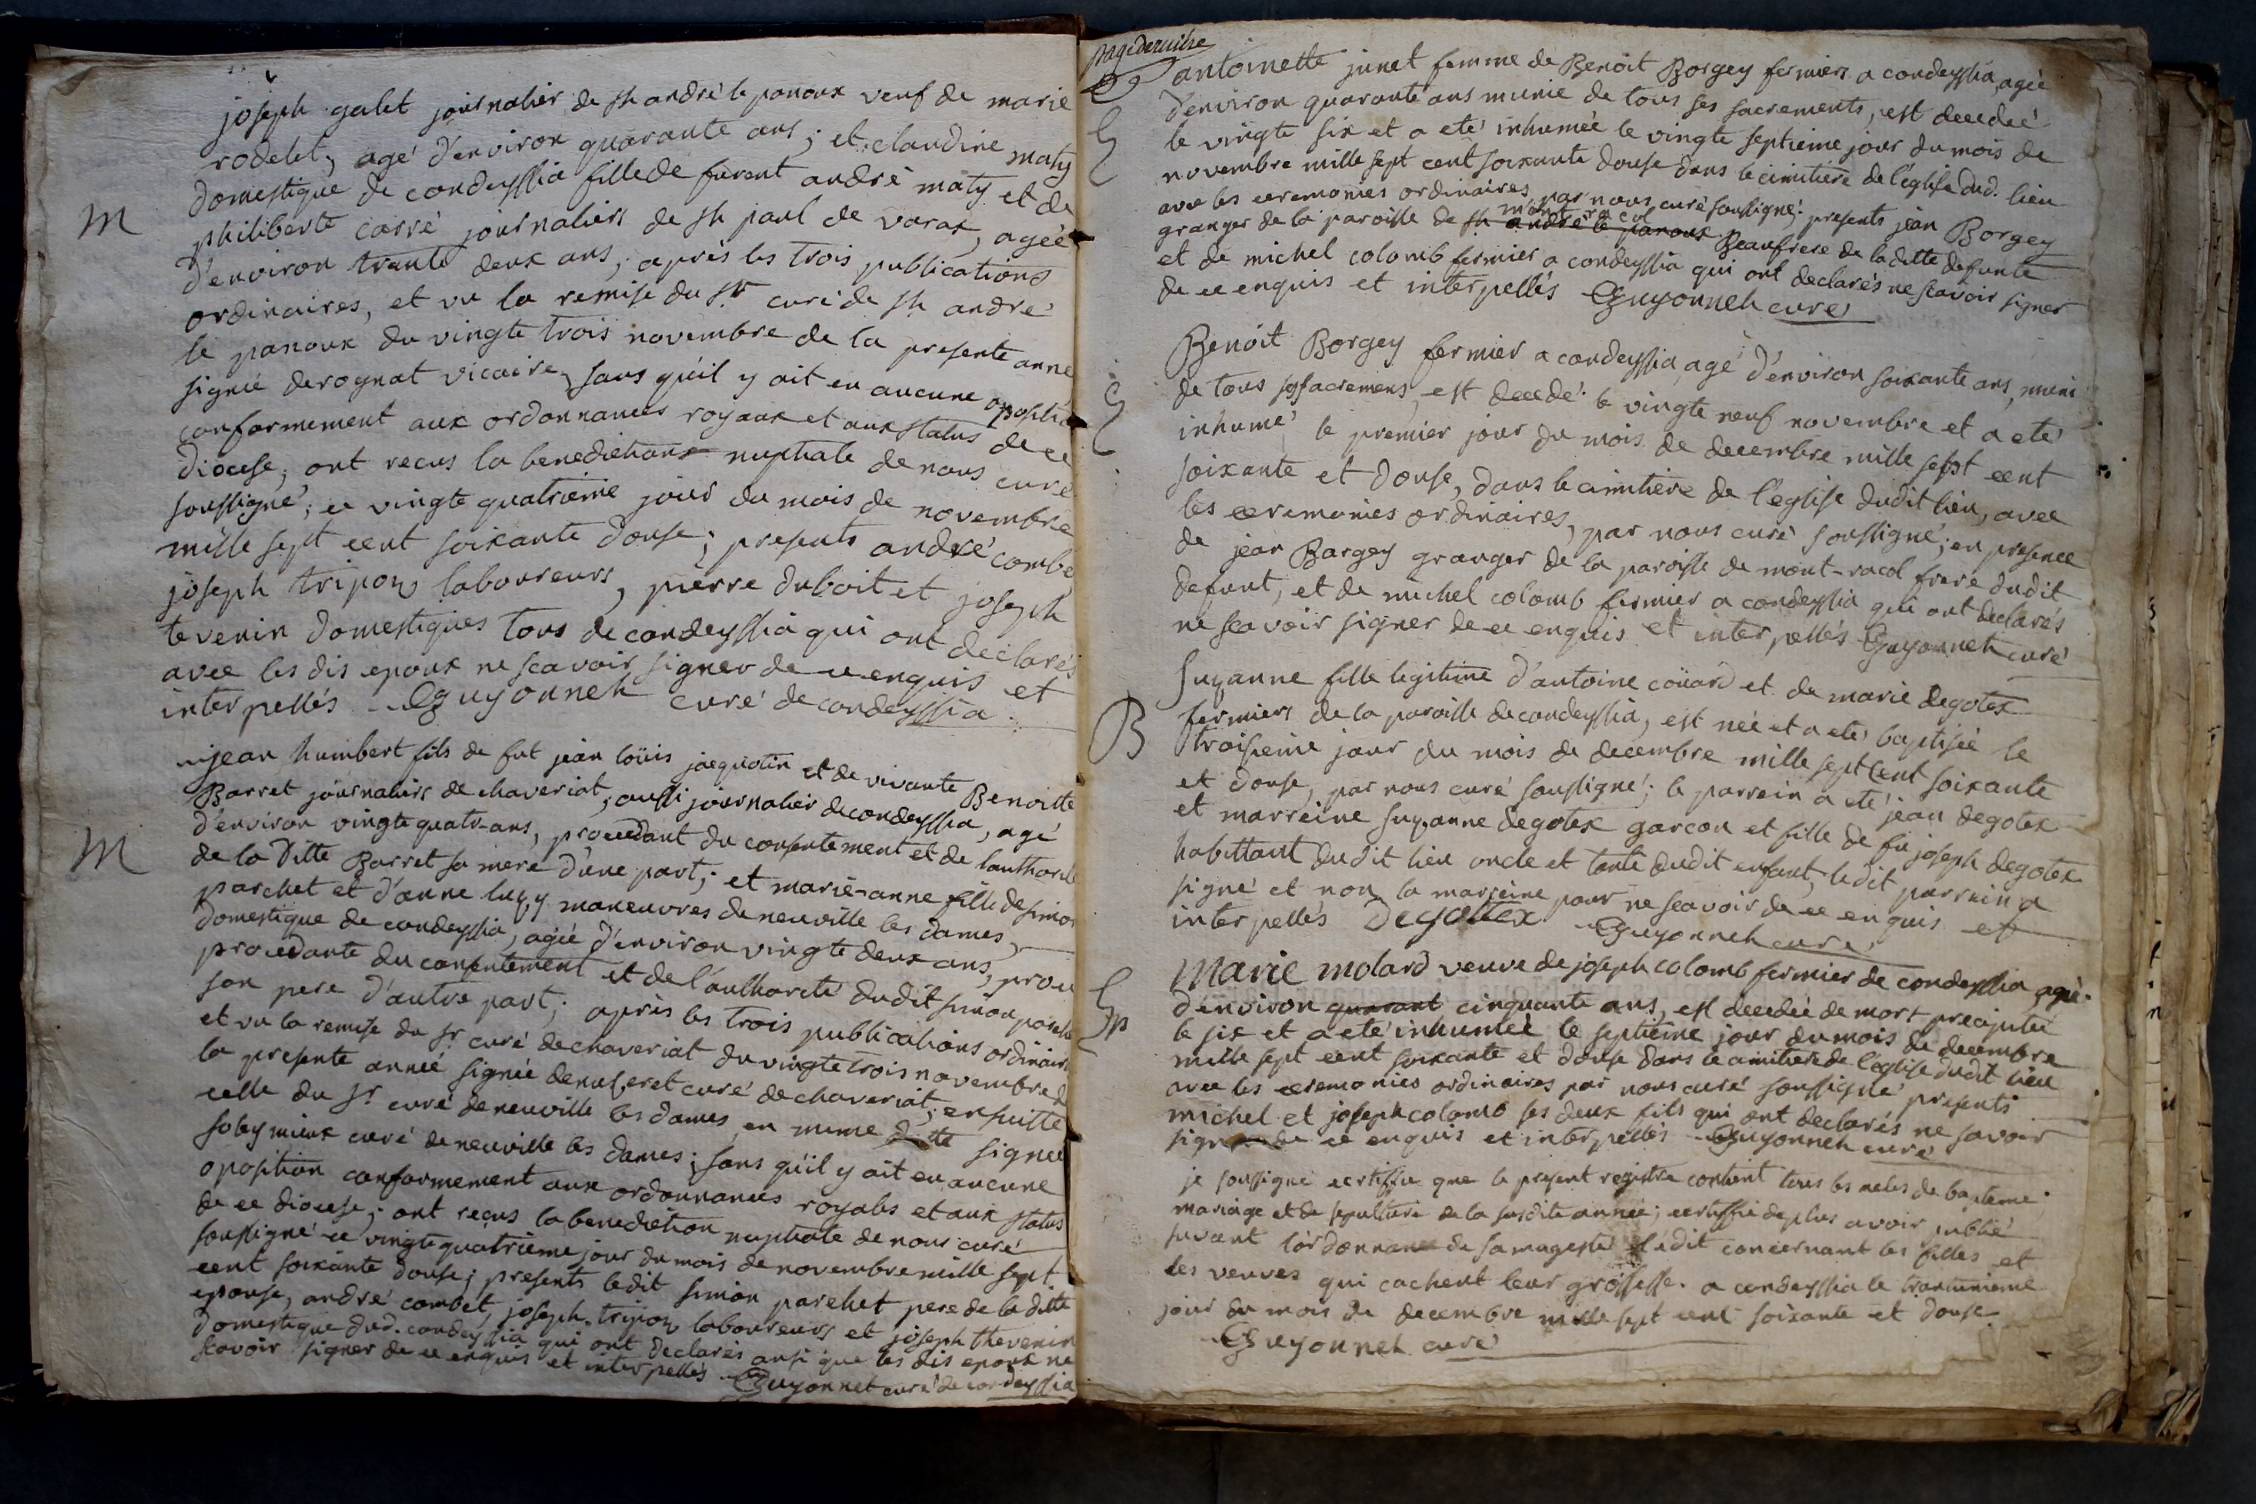 joseph galet journalier de st andré le panoux veuf de marie
rodelet, agé d'environ quarante ans ; et claudine maty
domestique de condeyssia fille de furent andré maty et de
M
philiberte carré journaliers de st paul de varax, agée
d'environ trante deux ans ; après les trois publications
ordinaires, et vu la remise du sr curé de st andré
le panoux du vingte trois novembre de la presente anne
signée derognat vicaire, sans qu'il y ait eu aucune opositi
conformement aux ordonnances royaux et aux status de ce
diocese, ont recus la benediction nuptiale de nous curé
soussigné ; ce vingte quatrieme jour du mois de novembre
mille sept cent soixante douse ; presents andré combe
joseph tripoz laboureurs, pierre duboit et joseph
tevenin domestiques tous de condeyssia qui ont declarés
avec les dis epoux ne scavoir signer de ce enquis et
interpellés Guyonnet curé de condeyssia
jean humbert fils de fut jean loüis jacquotin et de vivante Benoitte
Barret journaliers de chaveriat, aussi journalier de condeyssia, agé
d'environ vingte quatr-ans, procedant du consentement et de l'authorit
M
de la ditte Barret sa mere d'une part ; et marie-anne fille de simon
parchet et d'anne luzy maneuvres de neuville les dames,
domestique de condeyssia, agée d'environ vingte deux ans,
procedante du consentement et de l'authorité dudit simon parche
son pere d'autre part ; après les trois publications ordinaire
et vu la remise du sr curé de chaveriat du vingte trois novembre d
la presente année signée curé de chaveriat ; ensuitte
celle du sr curé de neuville les dames en meme datte signée
sobymieux curé de neuville les dames ; sans qu'il y ait eu aucune
oposition conformement aux ordonnances royales et aux status
de ce diocese ; ont reçus la benediction nuptiale de nous curé
soussigné ce vingte quatrieme jour du mois de novembre mille sept
cent soixante douse ; presents ledit simon parchet pere de la ditte
epouse, andré combet, joseph tripoz laboureurs et joseph thevenin
domestique dud. condeyssia qui ont declarés ansi que les dis epoux ne
scavoir signer de ce enquis et interpellés Guyonnet curé de condeyssia
page derniere
antoinette junet femme de Benoit Borgey fermiers a condeyssia, agée
d'environ quarante ans munie de tous ses sacrements, est decedeé
le vingte six et a eté inhumée le vingte septieme jour du mois de
novembre mille sept cent soixante douse dans le cimitière de l'eglise dud. lieu
avec les ceremonies ordinaires, par nous curé soussigné ; presents jean Borgey
mont racol
granger de la paroisse de st andré le panoux Beaufrere de la ditte defunte
et de michel colomb fermier a condeyssia qui ont declarés ne scavoir signer
de ce enquis et interpellés Guyonnet curé
Benoit Borgey fermier a condeyssia, agé d'environ soixante ans, muni
de tous ses sacremens, est decedé le vingte neuf novembre et a eté
inhumé le premier jour du mois de decembre mille sept cent
soixante et douse, dans le cimitière de l'eglise dudit lieu, avec
les ceremonies ordinaires, par nous curé soussigné ; en presence
de jean Borgey granger de la paroisse de mont-racol frere dudit
defunt, et de michel colomb fermier a condeyssia qui ont declarés
ne scavoir signer de ce enquis et interpellés Guyonnet curé
Suzanne fille legitime d'antoine coüard et de marie degotex
B
fermiers de la paroisse de condeyssia, est née et a eté baptisée le
troisieme jour du mois de decembre mille sept cent soixante
et douse, par nous curé soussigné ; le parrein a eté jean degotex
et marreine suzanne degotex garcon et fille de fu joseph degotex
habittant dudit lieu oncle et tante dudit enfant, ledit parrein a
signé et non la marreine pour ne scavoir de ce enquis et
interpellés Degottex Guyonnet curé
Marie molard veuve de joseph colomb fermier de condeyssia agée
Sp
d'environ quarant cinquante ans, est decedée de mort precipitée
le six et a eté inhumée le septieme jour du mois de decembre
mille sept cent soixante et douse dans le cimitiere de l'eglise dudit lieu
avec les ceremonies ordinaires par nous curé soussigné presents
michel et joseph colomb ses deux fils qui ont declarés ne savoir
signer de ce enquis et interpellés Guyonnet curé
je soussigné certiffie que le present registre contient tous les actes de bapteme
mariage et de sepulture de la susdite année ; certiffie de plus avoir publié
suivant l'ordonnance de sa magesté l'edit concernant les filles et
les veuves qui cachent leur grossesse. a condeyssia le trantunieme
jour du mois de decembre mille sept cent soixante et douse
Guyonnet curé